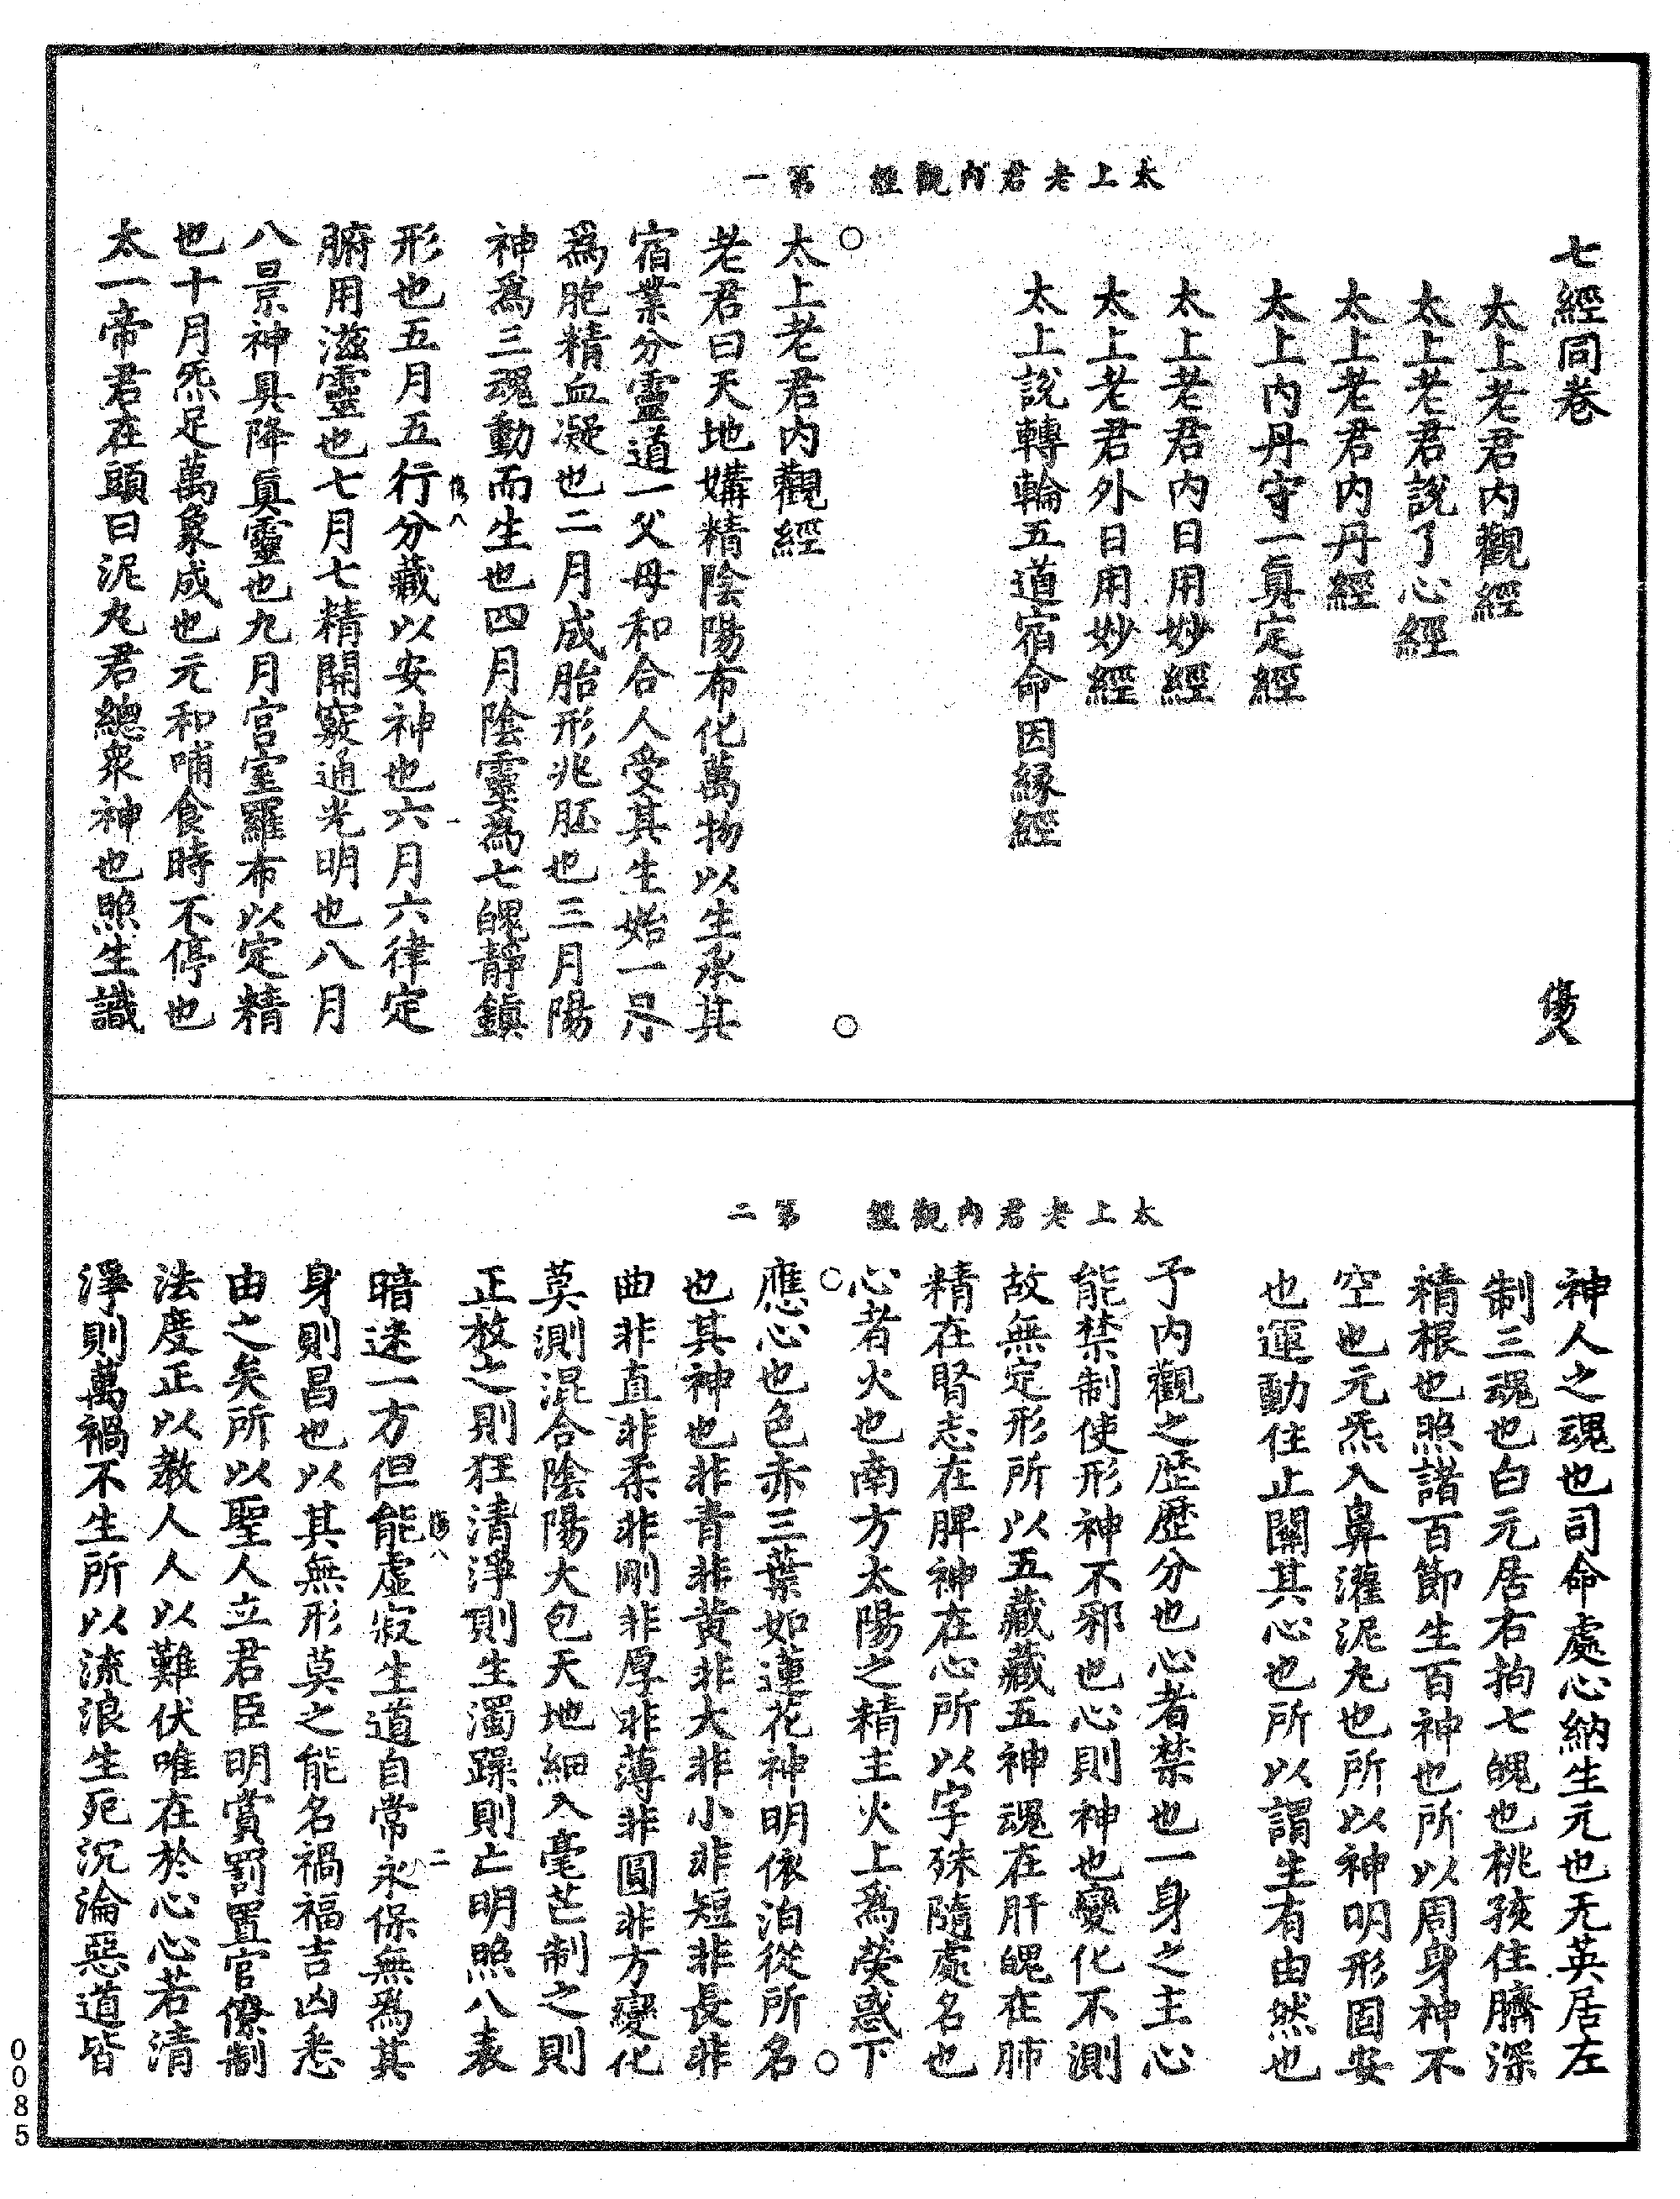 太上老君內觀經　第一
七經同卷　傷八
太上老君內觀經
太上老君說了心經
太上老君內丹經
太上內丹守一眞定經
太上老君內日用妙經
太上老君外日用妙經
太上說轉輪五道宿命因緣經
太上老君內觀經
老君曰天地媾精陰陽布化萬物以生承其
宿業分靈道一父母和合人受其生始一月
爲胞精血凝也二月成胎形兆胚也三月陽
神爲三魂動而生也四月陰靈爲七魄靜鎮
傷八　一
形也五月五行分藏以安神也六月六律定
腑用滋靈也七月七精開竅通光明也八月
八景神具降眞靈也九月宮室羅布以定精
也十月炁足萬象成也元和哺食時不停也
太一帝君在頭曰泥丸君總衆神也照生識
太上老君內觀經　第二
神人之魂也司命處心納生元也无英居左
制三魂也白元居右拘七魄也桃孩住臍深
精根也照諸百節生百神也所以周身神不
空也元炁入鼻灌泥丸也所以神明形固安
也運動住止關其心也所以謂生有由然也
予內觀之歷歷分也心者禁也一身之主心
能禁制使形神不邪也心則神也變化不測
故無定形所以五藏藏五神魂在肝魄在肺
精在腎志在脾神在心所以字殊隨處名也
心者火也南方太陽之精主火上爲熒惑下
應心也色赤三葉如蓮花神明依泊從所名
也其神也非青非黃非大非小非短非長非
曲非直非柔非剛非厚非薄非圓非方變化
莫測混合陰陽大包天地細入毫芒制之則
正放之則狂清淨則生濁躁則亡明照八表
傷八　二
暗迷一方但能虛寂生道自常永保無爲其
身則昌也以其無形莫之能名禍福吉凶悉
由之矣所以聖人立君臣明賞罰置官僚制
法度正以教人人以難伏唯在於心心若清
淨則萬禍不生所以流浪生死沉淪惡道皆
0085